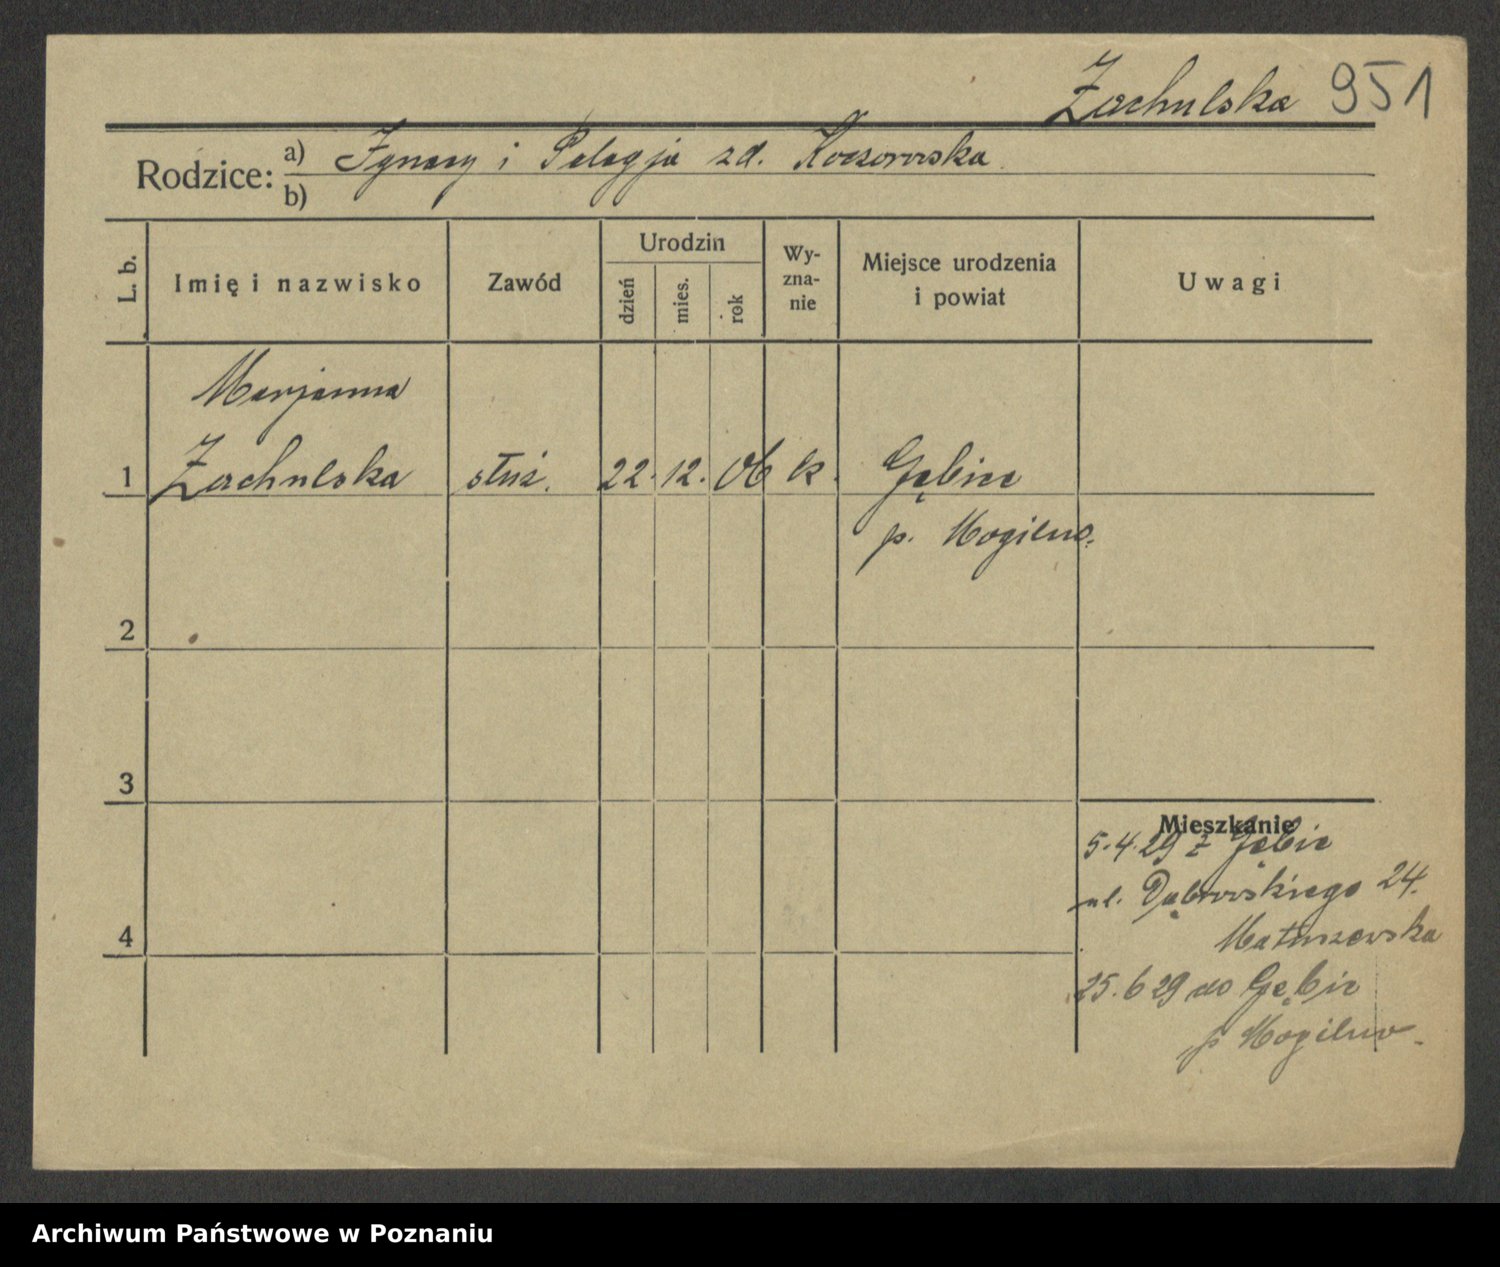 Zachulska 951
Rodzice: a) Ignacy i Pelagja zd. Koczorowska
b)
L. b. Imię i nazwisko Zawód Urodzin dzień mies. rok Wyznanie Miejsce urodzenia i powiat Uwagi
Marjanna
1 Zachulska służ. 22. 12. 06 k. Gębice
p. Mogilno.
2
3
Mieszkanie
5.4.29 z Gębic
ul. Dąbrowskiego 24.
4 Matuszewska
25.6 29 do Gębic
p Mogilno.
Archiwum Państwowe w Poznaniu